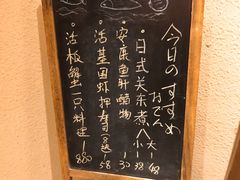 今日のすすめ
おでん
・日式关东煮〈大—48
小—38
・安康鱼肝醋物—30
・活基围虾押寿司(8送)—58
・活板蟹一只料理—280